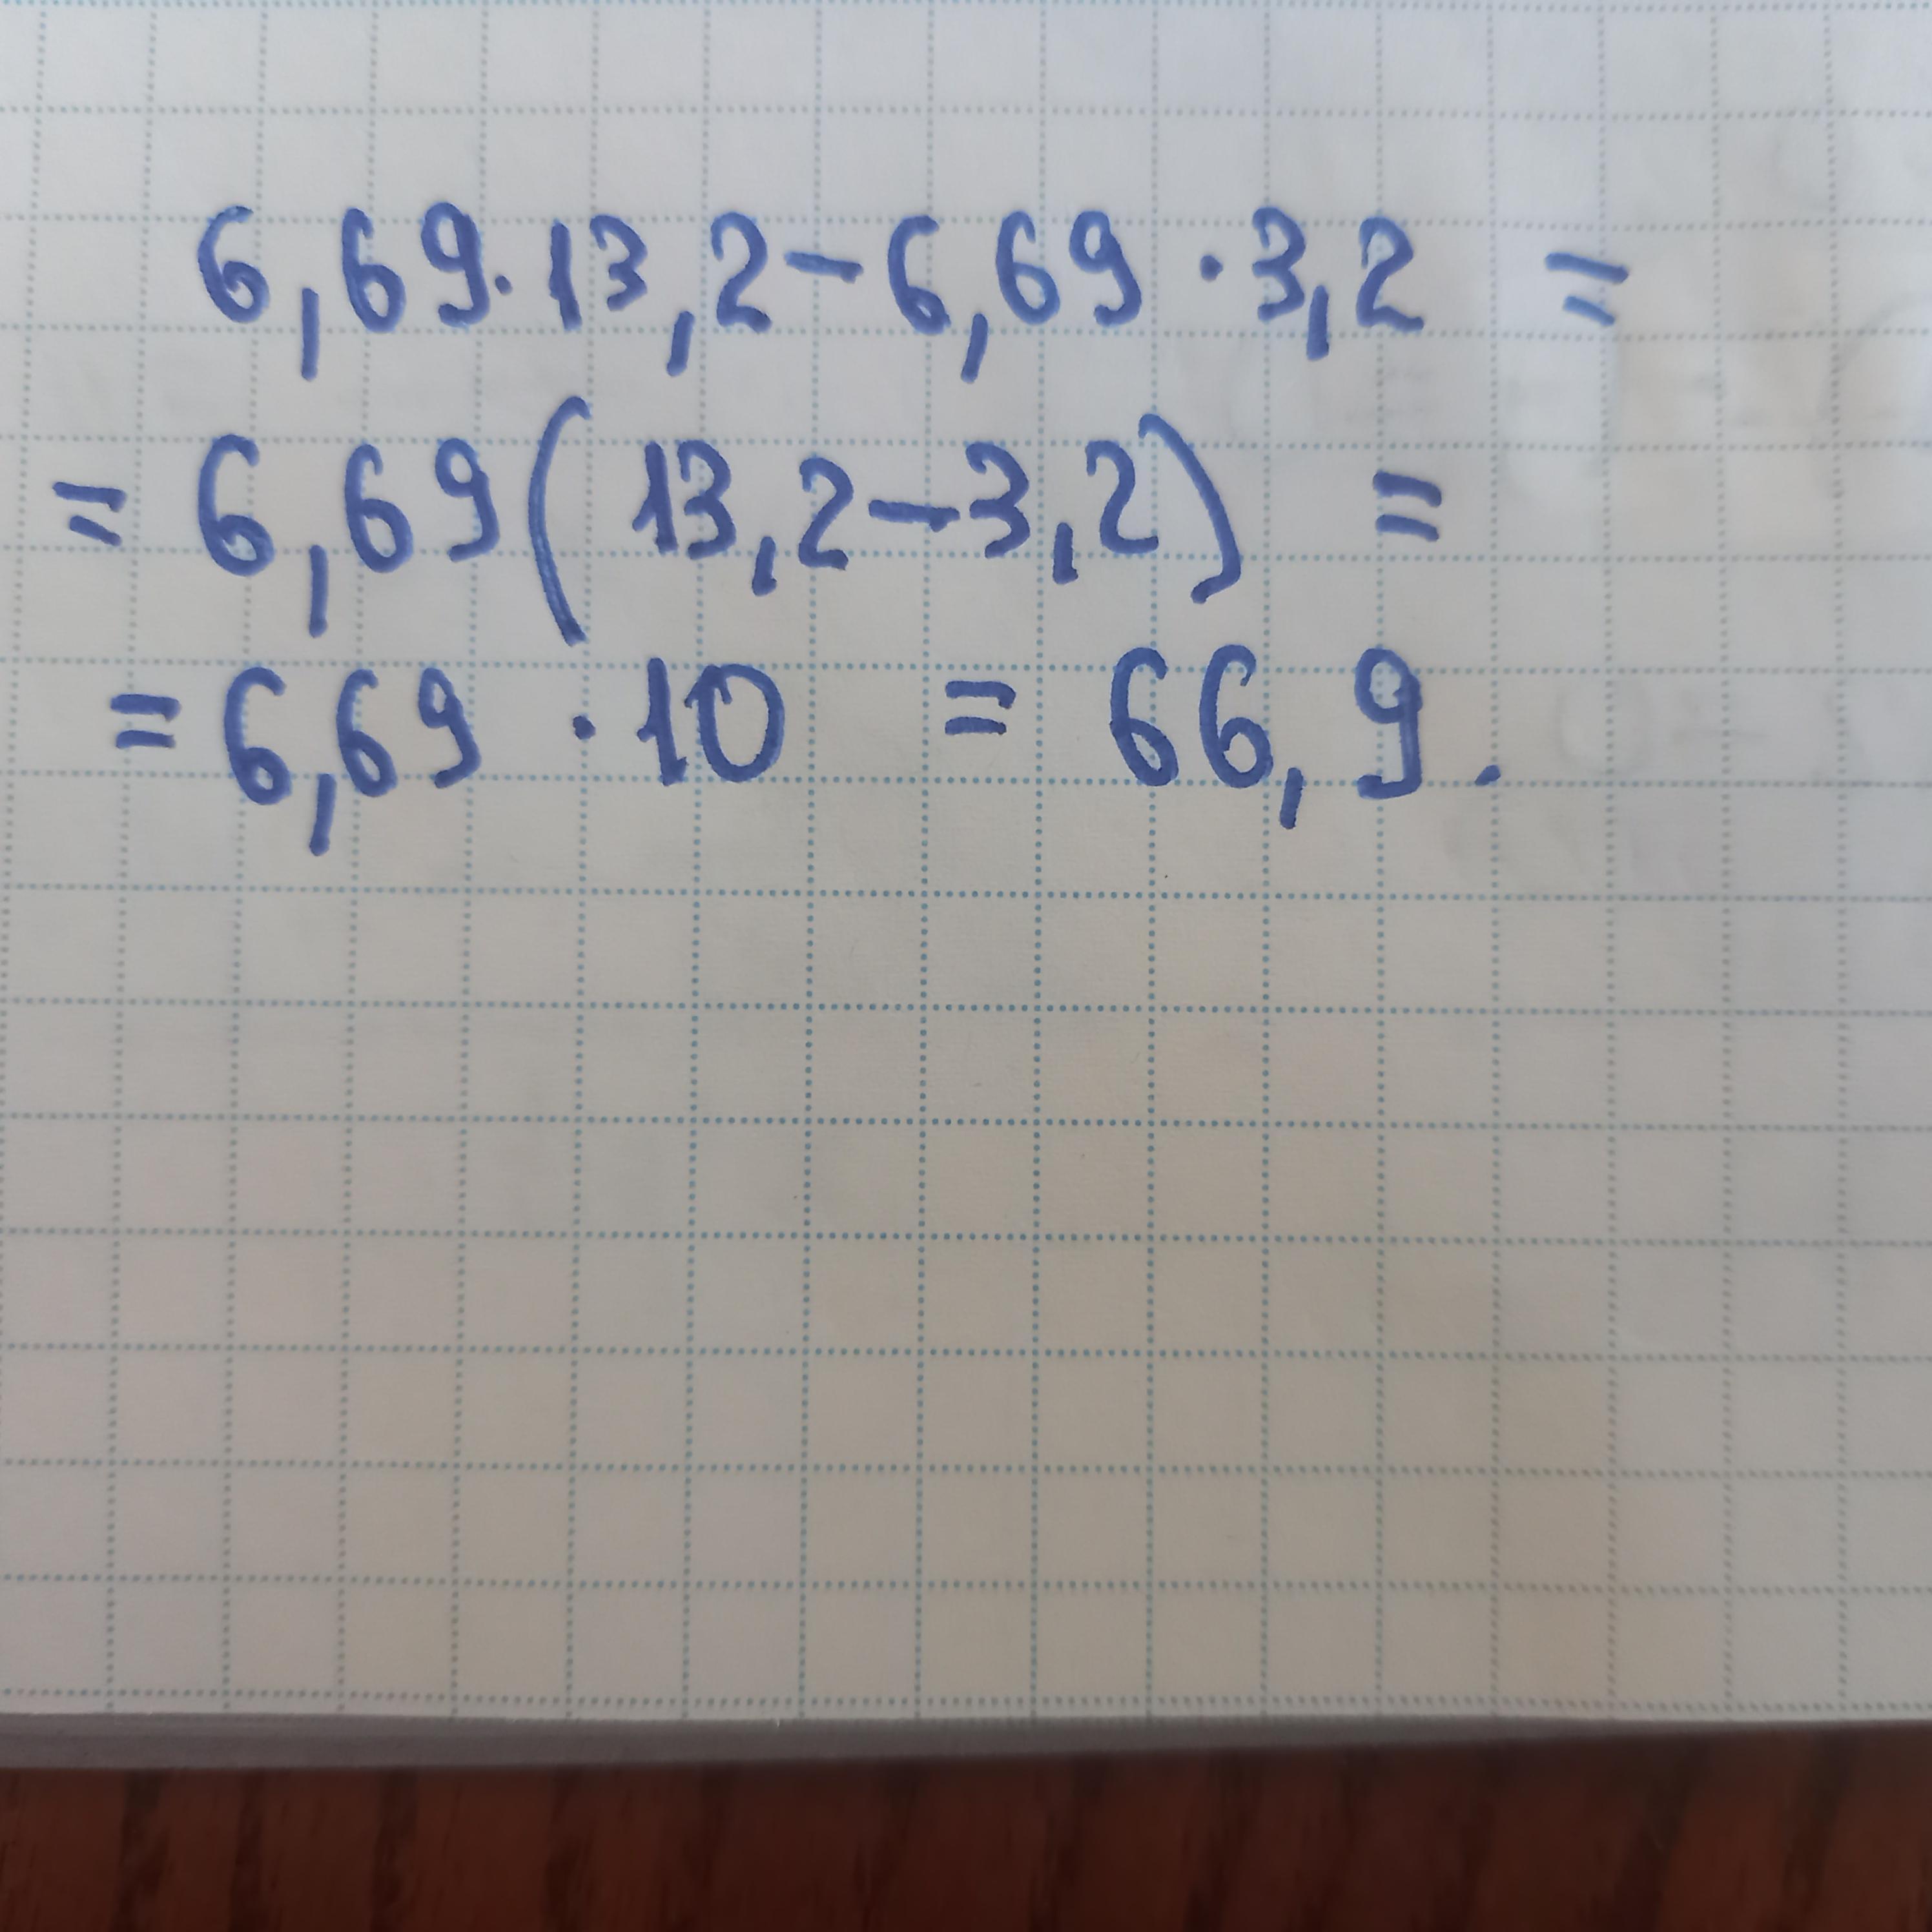 6,69·13,2-6,69·3,2 =
= 6,69(13,2-3,2) =
= 6,69·10 = 66,9.